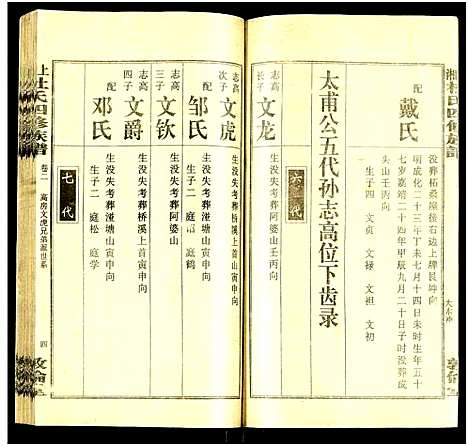 湘杜氏四修族谱
配
戴氏
明成化二十三年丁未七月十四日未时生年五十
七岁嘉靖二十四年甲辰九月二十日子时没葬成
头山壬丙向
生子四 文贞 文禄 文祖 文初
太甫公五代孙志高位下齿录
六代
志高
长子
文龙
生没失考葬阿婆山壬丙向
志高
次子
文虎
生没失考葬桥溪上首山寅申向
配
邹氏
生没失考葬湴塘山寅申向
生子二 庭韶 庭鹤
志高
三子
文钦
生没失考葬阿婆山
志高
四子
文爵
生没失考葬桥溪上首寅申向
配
邓氏
生没失考葬湴塘山寅申向
生子二 庭松 庭学
七代
上杜氏四修族谱
卷二
高房文虎兄弟派世系
四
敦伦堂